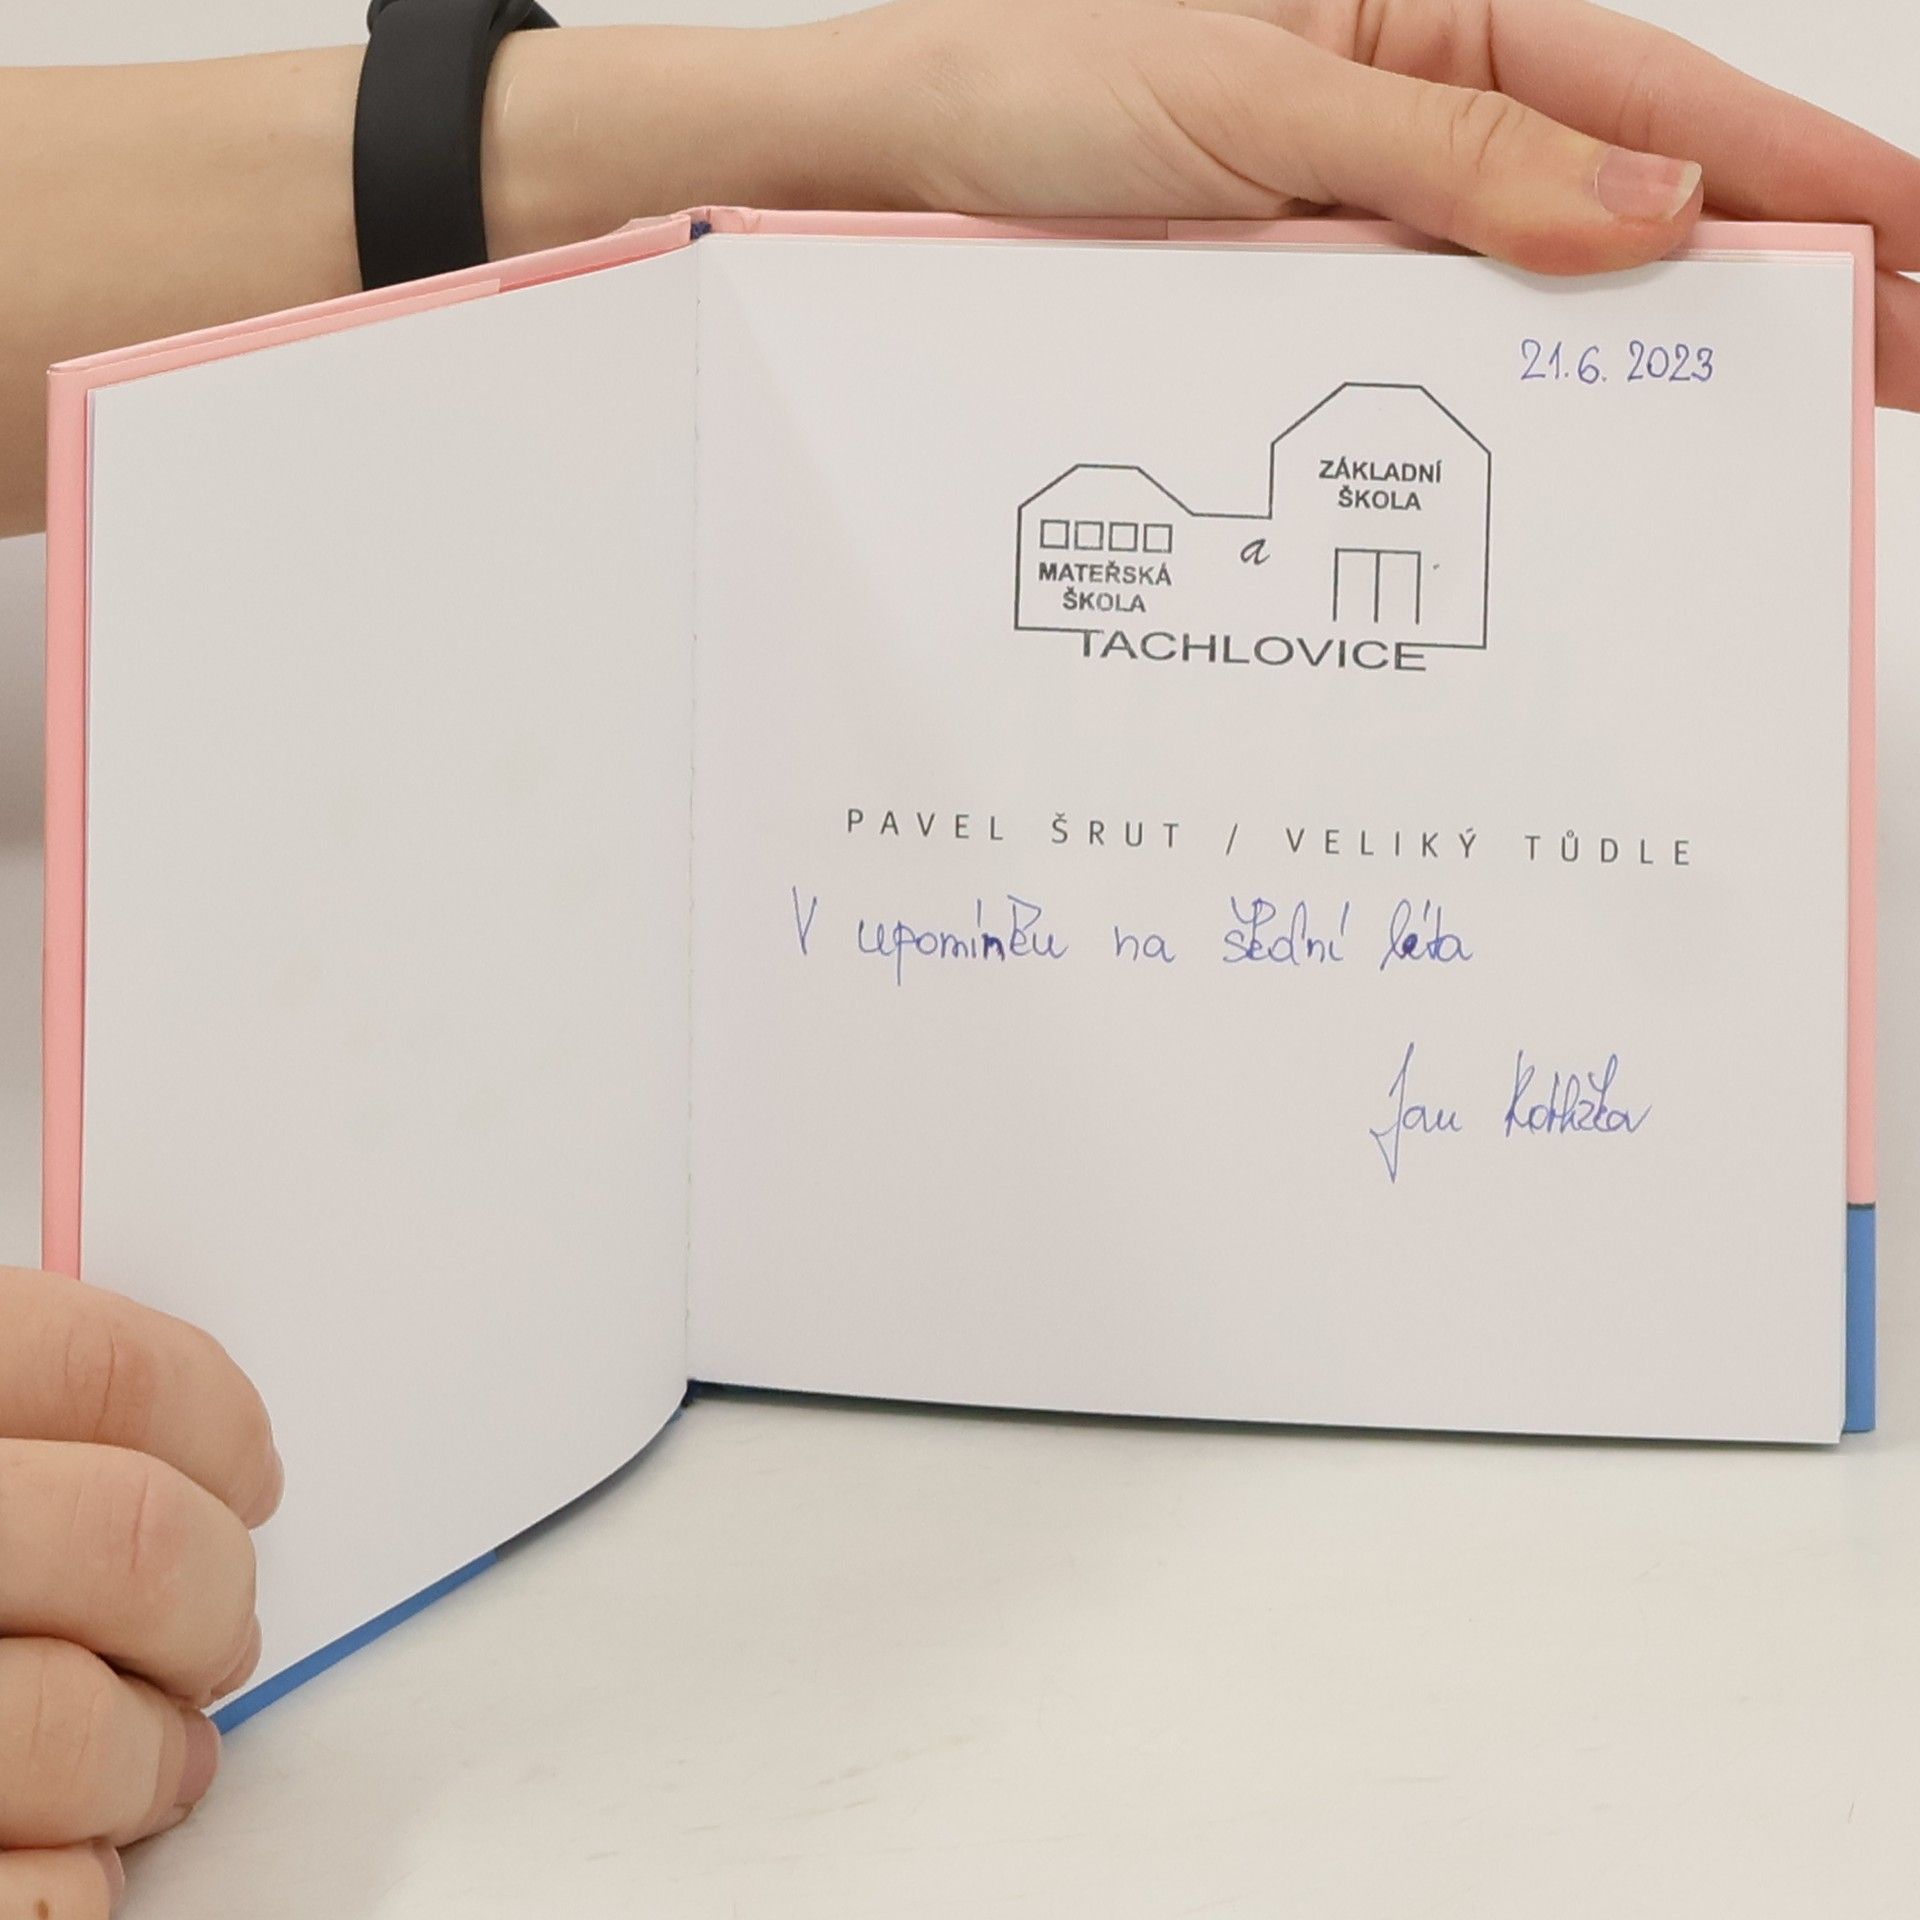 21.6. 2023
ZÁKLADNÍ
ŠKOLA
a
MATEŘSKÁ
ŠKOLA
TACHLOVICE
PAVEL ŠRUT / VELIKÝ TŮDLE
V upomínku na školní léta
Jan